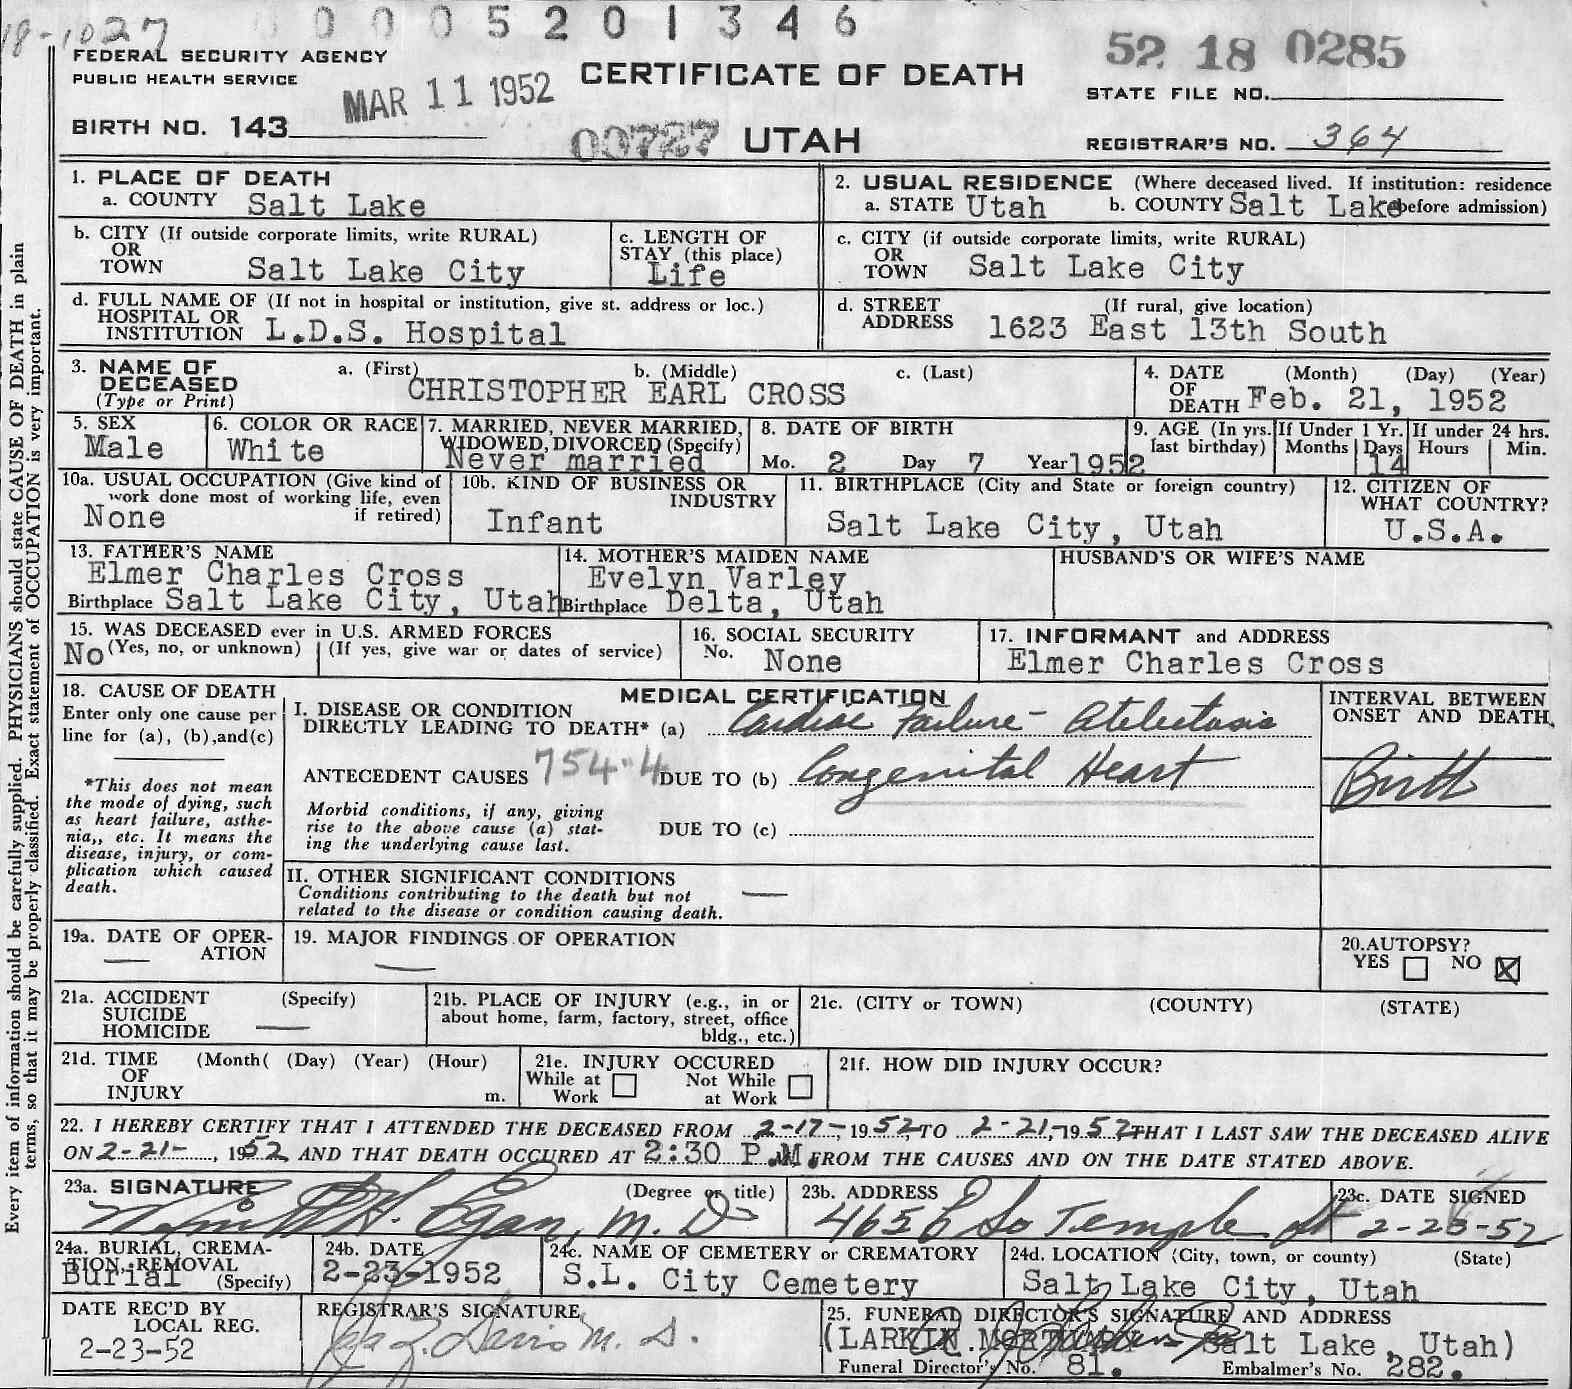 18-1027 0 0 0 5 2 0 1 3 4 6
FEDERAL SECURITY AGENCY
PUBLIC HEALTH SERVICE
MAR 11 1952
CERTIFICATE OF DEATH
52 18 0285
STATE FILE NO.
BIRTH NO. 143
00727 UTAH
REGISTRAR'S NO. 364
Every item of information should be carefully supplied. PHYSICIANS should state CAUSE OF DEATH in plain
terms, so that it may be properly classified. Exact statement of OCCUPATION is very important.
1. PLACE OF DEATH
a. COUNTY Salt Lake
2. USUAL RESIDENCE (Where deceased lived. If institution: residence
a. STATE Utah b. COUNTY Salt Lake before admission)
b. CITY (If outside corporate limits, write RURAL)
OR
TOWN Salt Lake City
c. LENGTH OF
STAY (this place)
Life
c. CITY (if outside corporate limits, write RURAL)
OR
TOWN Salt Lake City
d. FULL NAME OF (If not in hospital or institution, give st. address or loc.)
HOSPITAL OR
INSTITUTION L.D.S. Hospital
d. STREET (If rural, give location)
ADDRESS 1623 East 13th South
3. NAME OF
DECEASED
(Type or Print)
a. (First) b. (Middle) c. (Last)
CHRISTOPHER EARL CROSS
4. DATE (Month) (Day) (Year)
OF
DEATH Feb. 21, 1952
5. SEX
Male
6. COLOR OR RACE
White
7. MARRIED, NEVER MARRIED,
WIDOWED, DIVORCED (Specify)
Never married
8. DATE OF BIRTH
Mo. 2 Day 7 Year 1952
9. AGE (In yrs.
last birthday)
If Under 1 Yr.
Months Days
14
If under 24 hrs.
Hours Min.
10a. USUAL OCCUPATION (Give kind of
work done most of working life, even
if retired)
None
10b. KIND OF BUSINESS OR
INDUSTRY
Infant
11. BIRTHPLACE (City and State or foreign country)
Salt Lake City, Utah
12. CITIZEN OF
WHAT COUNTRY?
U.S.A.
13. FATHER'S NAME
Elmer Charles Cross
Birthplace Salt Lake City, Utah
14. MOTHER'S MAIDEN NAME
Evelyn Varley
Birthplace Delta, Utah
HUSBAND'S OR WIFE'S NAME
15. WAS DECEASED ever in U.S. ARMED FORCES
No (Yes, no, or unknown) (If yes, give war or dates of service)
16. SOCIAL SECURITY
No. None
17. INFORMANT and ADDRESS
Elmer Charles Cross
18. CAUSE OF DEATH
Enter only one cause per
line for (a), (b), and (c)
*This does not mean
the mode of dying, such
as heart failure, asthe-
nia,, etc. It means the
disease, injury, or com-
plication which caused
death.
MEDICAL CERTIFICATION
I. DISEASE OR CONDITION
DIRECTLY LEADING TO DEATH* (a) Cardiac Failure - Atelectasis
ANTECEDENT CAUSES 754.4 DUE TO (b) Congenital Heart
Morbid conditions, if any, giving
rise to the above cause (a) stat-
ing the underlying cause last.
DUE TO (c)
INTERVAL BETWEEN
ONSET AND DEATH
Birth
II. OTHER SIGNIFICANT CONDITIONS —
Conditions contributing to the death but not
related to the disease or condition causing death.
19a. DATE OF OPER-
ATION
—
19. MAJOR FINDINGS OF OPERATION
—
20. AUTOPSY?
YES ☐ NO ☒
21a. ACCIDENT (Specify)
SUICIDE
HOMICIDE —
21b. PLACE OF INJURY (e.g., in or
about home, farm, factory, street, office
bldg., etc.)
21c. (CITY or TOWN) (COUNTY) (STATE)
21d. TIME (Month( (Day) (Year) (Hour)
OF
INJURY m.
21e. INJURY OCCURED
While at Work ☐ Not While at Work ☐
21f. HOW DID INJURY OCCUR?
22. I HEREBY CERTIFY THAT I ATTENDED THE DECEASED FROM 2-17-, 1952, TO 2-21-, 1952 THAT I LAST SAW THE DECEASED ALIVE
ON 2-21-, 1952 AND THAT DEATH OCCURED AT 2:30 P.M. FROM THE CAUSES AND ON THE DATE STATED ABOVE.
23a. SIGNATURE (Degree or title)
H. Egan, M.D.
23b. ADDRESS
465 E So Temple St
23c. DATE SIGNED
2-23-52
24a. BURIAL, CREMA-
TION, REMOVAL
Burial (Specify)
24b. DATE
2-23-1952
24c. NAME OF CEMETERY or CREMATORY
S.L. City Cemetery
24d. LOCATION (City, town, or county) (State)
Salt Lake City, Utah
DATE REC'D BY
LOCAL REG.
2-23-52
REGISTRAR'S SIGNATURE
Davis M.D.
25. FUNERAL DIRECTOR'S SIGNATURE AND ADDRESS
(LARKIN MORTUARY Salt Lake, Utah)
Funeral Director's No. 81. Embalmer's No. 282.